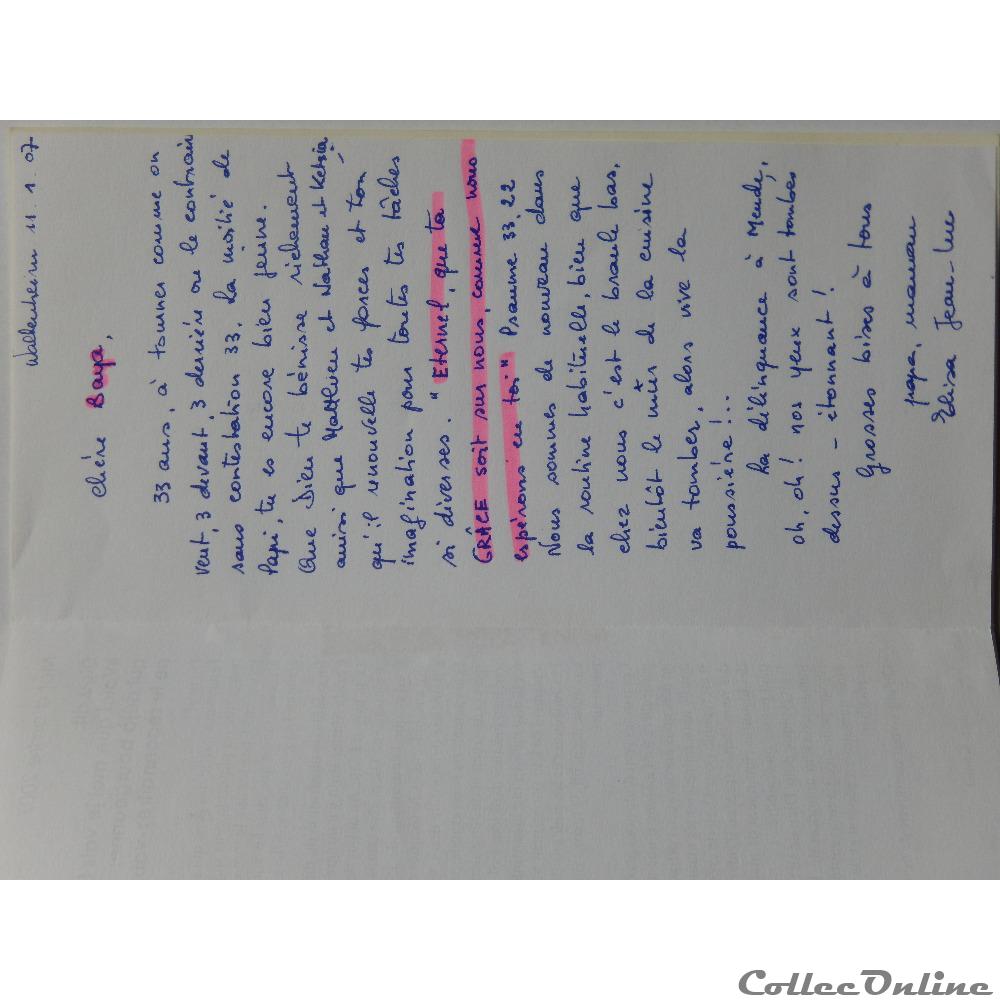 Waldenheim 11.1.07
Chère Baya,
33 ans, à tourner comme on
veut, 3 devant, 3 derrière ou le contraire
sans contestation 33. La moitié de
Papi, tu es encore bien jeune.
Que Dieu te bénisse richement
ainsi que Matthieu et Nathan et Ketsia,
qu'il renouvelle tes forces et ton
imagination pour toutes tes tâches
si diverses. "Eternel, que ta
GRÂCE soit sur nous, comme nous
espérons en toi" Psaume 33.22
Nous sommes de nouveau dans
la routine habituelle, bien que
chez nous c'est le branle bas,
bientôt le mur de la cuisine
va tomber, alors vive la
poussière!...
La délinquance à Mende,
oh, oh! nos yeux sont tombés
dessus - étonnant!
Grosses bises à tous
papa, maman
Elisa Jean-Luc
CollecOnline